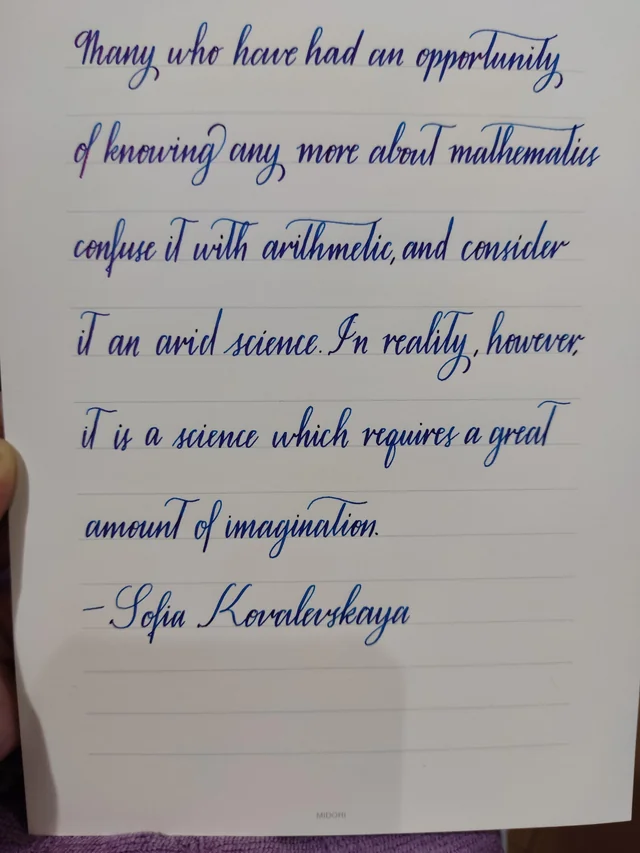 Many who have had an opportunity
of knowing any more about mathematics
confuse it with arithmetic, and consider
it an arid science. In reality, however,
it is a science which requires a great
amount of imagination.
- Sofia Kovalevskaya
MIDORI